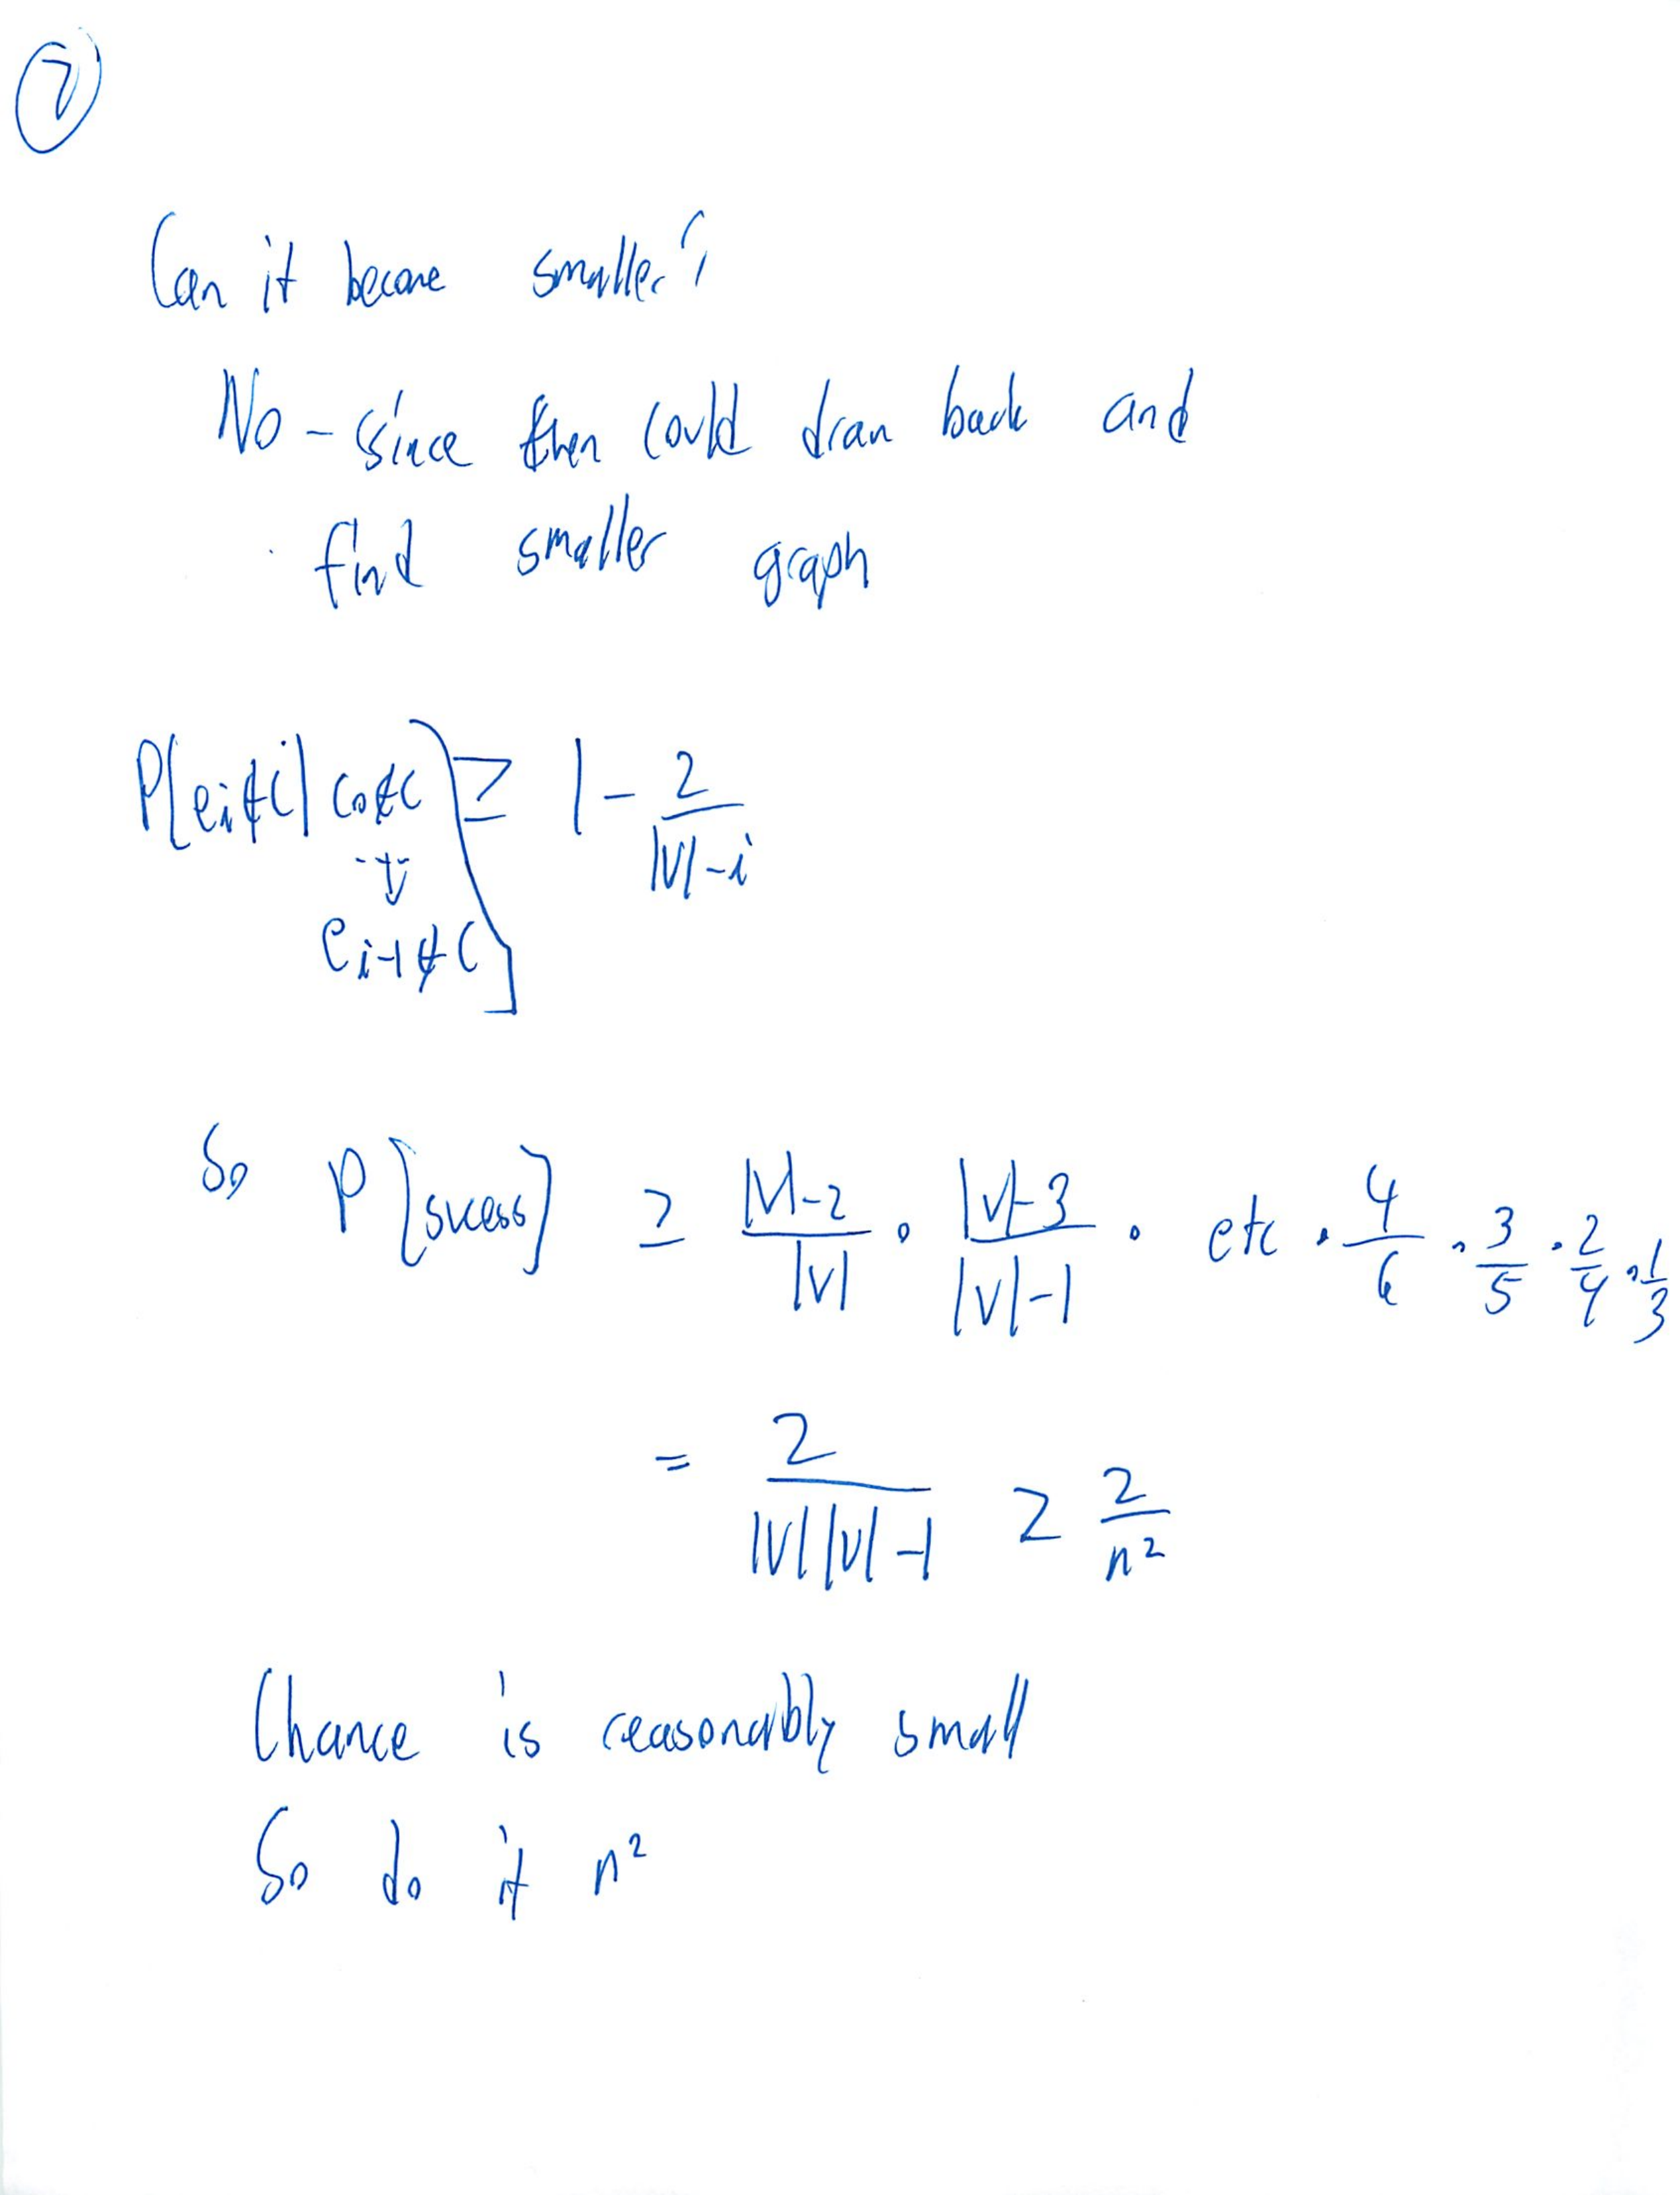 7
Can it become smaller?
No - since then could draw back and
find smaller graph
P[ei∉C| e0∉C ≥ 1 - 2/(|V|-i)
↓
ei-1∉C]
So P[sucess] ≥ |V|-2/|V| · |V|-3/|V|-1 · etc · 4/6 · 3/5 · 2/4 · 1/3
= 2/|V||V|-1 ≥ 2/n²
Chance is reasonably small
So do it n²